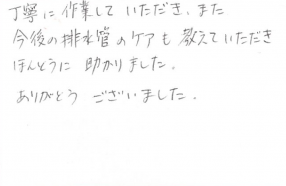 丁寧に作業して いただき、また
今後の排水管のケアも 教えていただき
ほんとうに 助かりました.
ありがとう ございました.